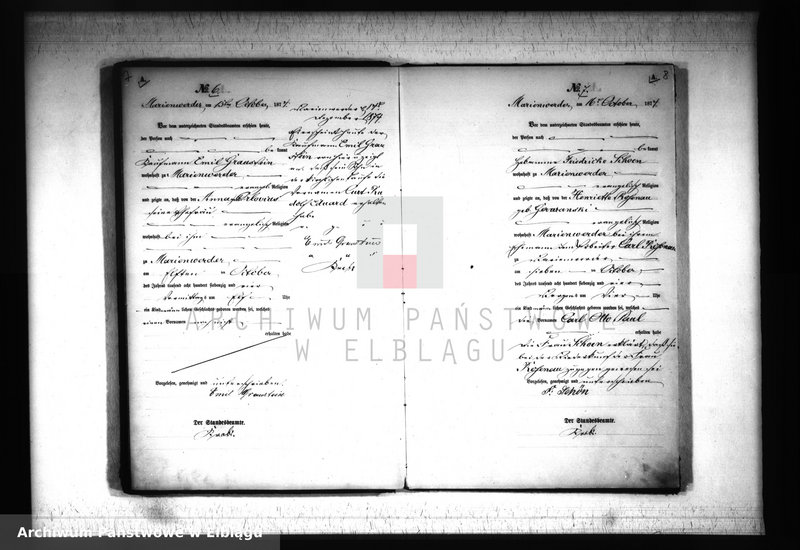 7 A.
№ 6.
Marienwerder, am 15ten October, 1874.
Vor dem unterzeichneten Standesbeamten erschien heute,
der Person nach
be kannt
Kaufmann Emil Graustein
wohnhaft zu Marienwerder
evangel. Religion
und zeigte an, daß von der
seiner Ehefrau
evangelisch Religion
wohnhaft bei ihm
zu Marienwerder
am fünften October
des Jahres tausend acht hundert siebenzig und vier
Vormittags um Uhr
ein Kind männlichen Geschlechts geboren worden sei, welches
einen Vornamen noch nicht
erhalten habe
Vorgelesen, genehmigt und unterschrieben,
Emil Graustein
Der Standesbeamte.
Marienwerder
Dezember 1874
Kaufmann Emil Grau-
stein
Vornamen Curt
Eduard erhalten
habe
Emil Graustein
A. 8
№ 7.
Marienwerder, am 16ten October, 1874.
Vor dem unterzeichneten Standesbeamten erschien heute,
der Person nach
be kannt
Hebamme Friedricke Schoen
wohnhaft zu Marienwerder
evangelisch Religion
und zeigte an, daß von der Henriette Rosenau
geb. Germanski
evangelisch Religion
wohnhaft Marienwerder bei ihrem
Ehemann Carl Rosenau
zu Marienwerder
am sieben October
des Jahres tausend acht hundert siebenzig und vier
Morgens um vier Uhr
ein Kind männlichen Geschlechts geboren worden sei, welches
die Vornamen Carl Otto Paul
erhalten habe
Die Frau Schoen erklärt, daß sie
bei der Niederkunft der Frau
Rosenau zugegen gewesen sei
Vorgelesen, genehmigt und unterschrieben
F. Schön
Der Standesbeamte.
ARCHIWUM PAŃSTWOWE
W ELBLĄGU
Archiwum Państwowe w Elblągu